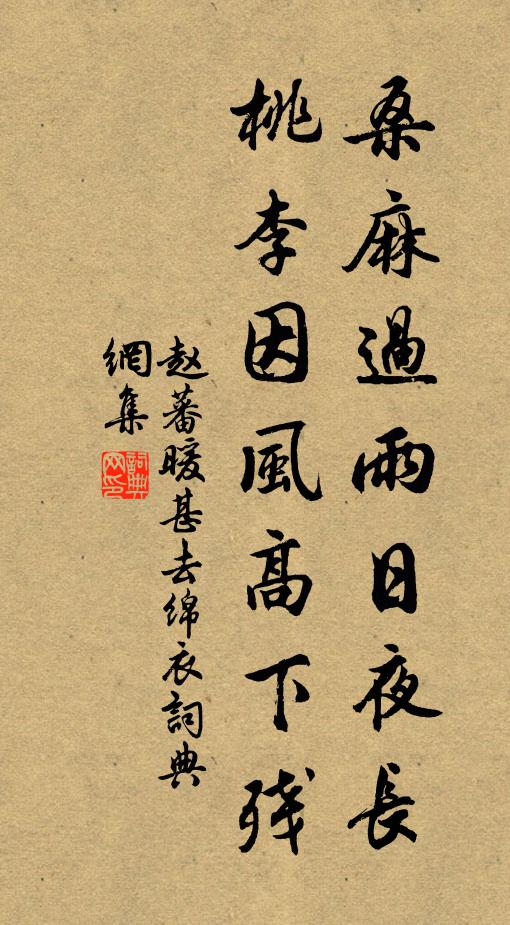 桑麻過雨日夜長
桃李因風高下残
赵蕃暖甚去绵衣詞典
網集
詞典
网印